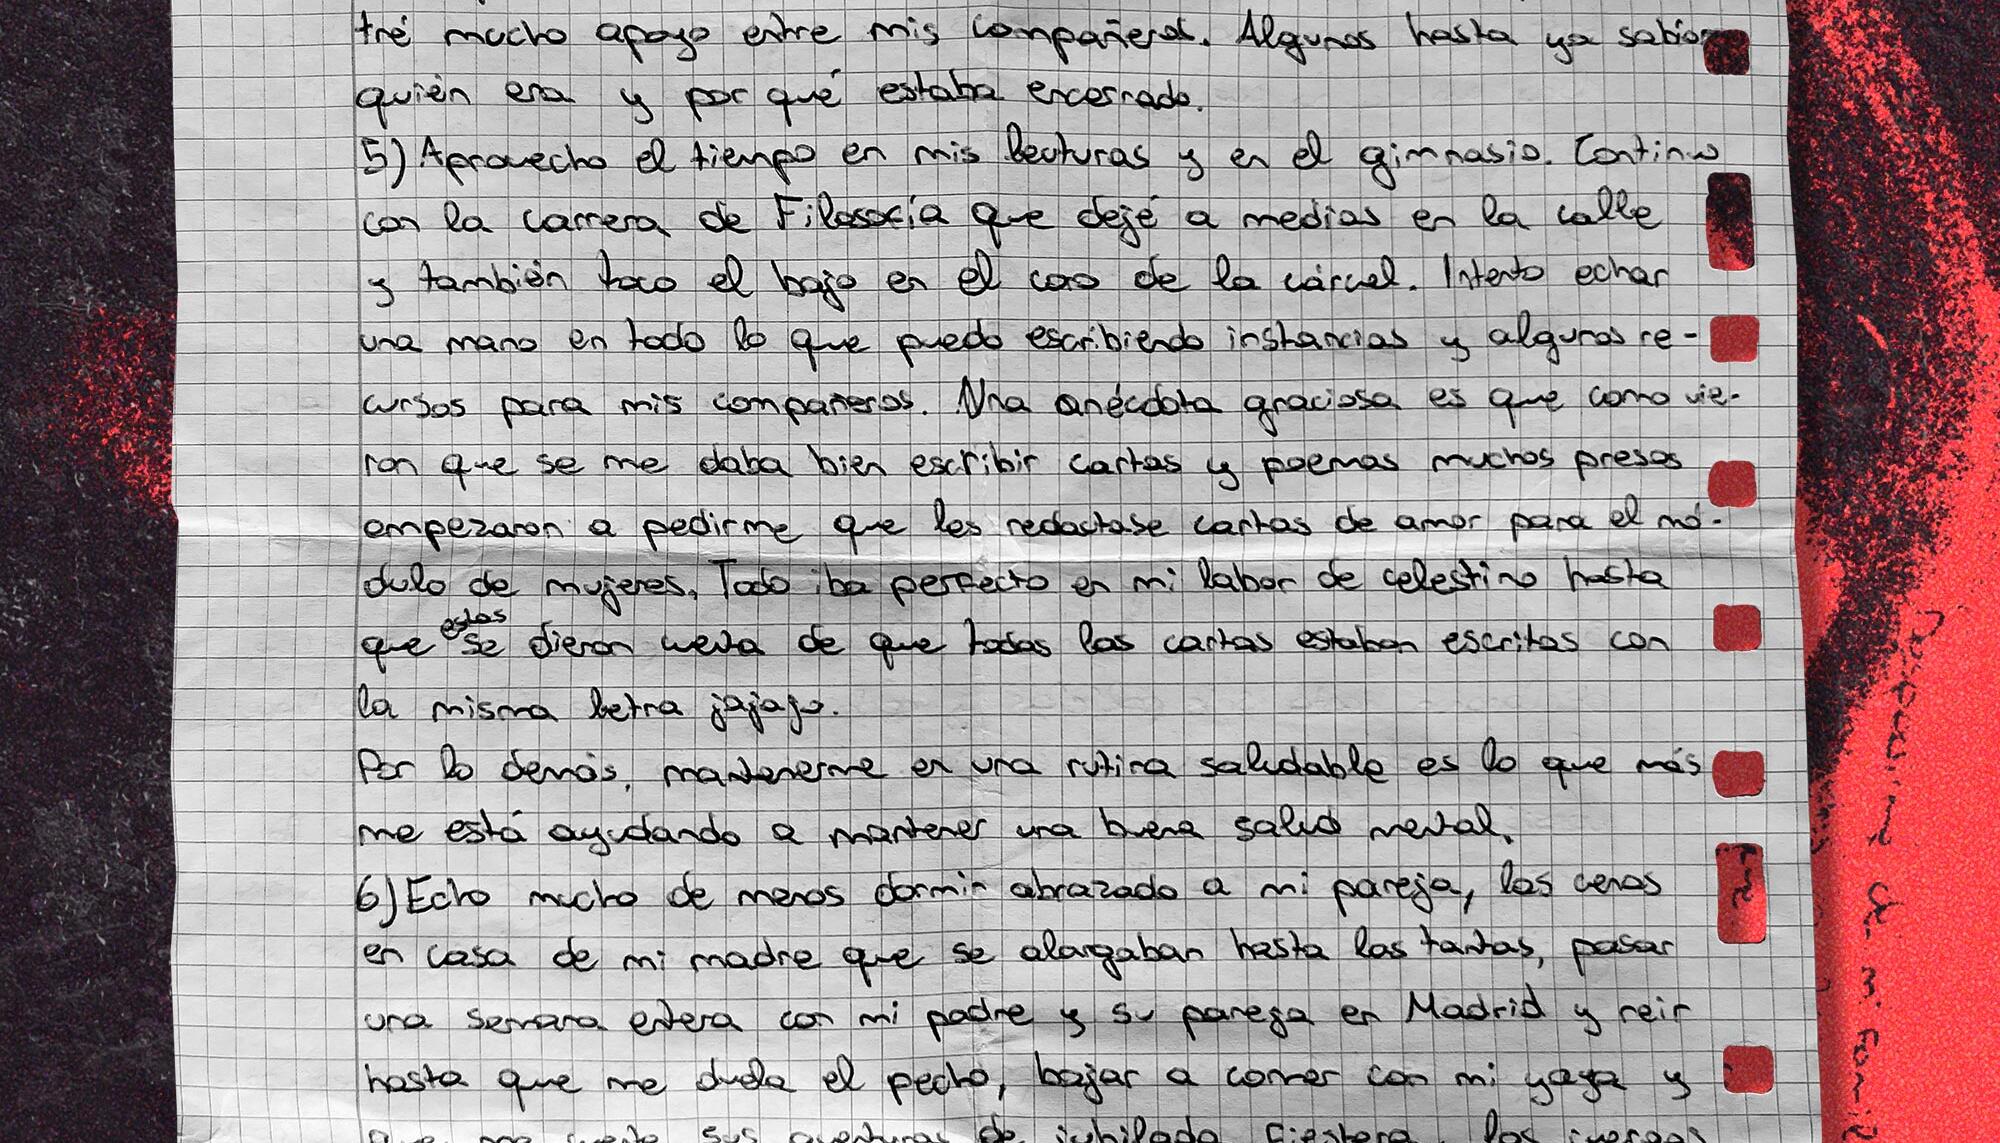 tré mucho apoyo entre mis compañeros. Algunos hasta ya sabían
quién era y por qué estaba encerrado.
5) Aprovecho el tiempo en mis lecturas y en el gimnasio. Continuo
con la carrera de Filosofía que dejé a medias en la calle
y también toco el bajo en el coro de la cárcel. Intento echar
una mano en todo lo que puedo escribiendo instancias y algunos re-
cursos para mis compañeros. Una anécdota graciosa es que como vie-
ron que se me daba bien escribir cartas y poemas muchos presos
empezaron a pedirme que les redactase cartas de amor para el mó-
dulo de mujeres. Todo iba perfecto en mi labor de celestino hasta
que estas se dieron cuenta de que todas las cartas estaban escritas con
la misma letra jajaja.
Por lo demás, mantenerme en una rutina saludable es lo que más
me está ayudando a mantener una buena salud mental.
6) Echo mucho de menos dormir abrazado a mi pareja, las cenas
en casa de mi madre que se alargaban hasta las tantas, pasar
una semana entera con mi padre y su pareja en Madrid y reir
hasta que me duela el pecho, bajar a comer con mi yaya y
que me cuente sus aventuras de jubilada fiestera, los juergas